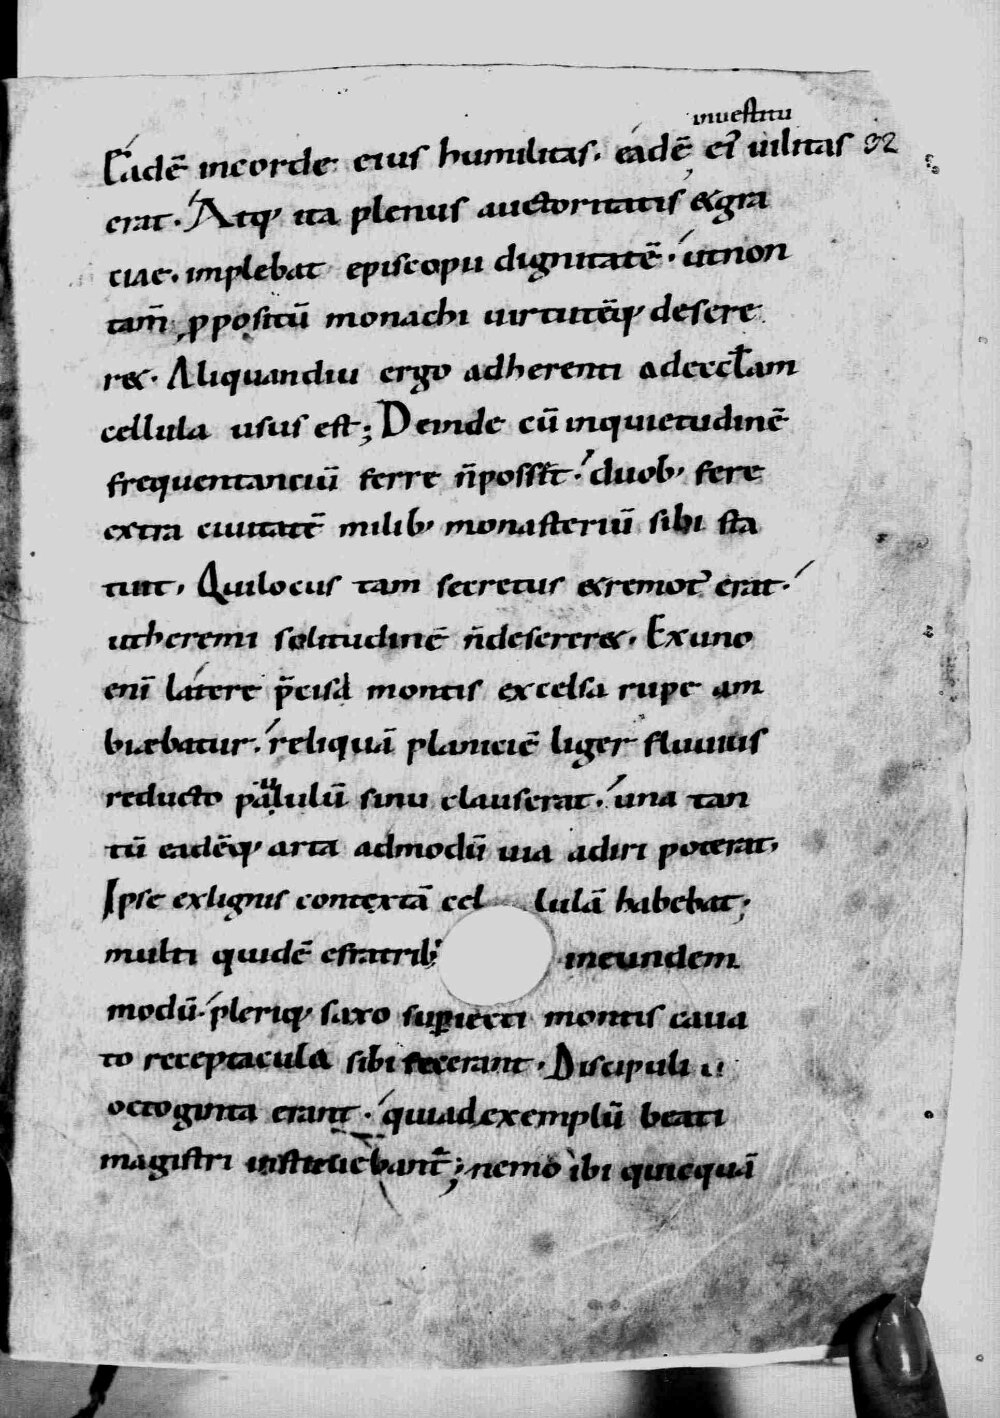 inuestitu
Eadē incorde eius humilitas. eadē ei᷒ uilitas 92
erat. Atq; ita plenus auctoritatis &gra
ciae. implebat episcopii dignitatē. utnon
tam̄ ꝓpositū monachi uirtutēq; desere
r&. Aliquandiu ergo adherenti adeccłam
cellula usus est; Deinde cū inquietudinē
frequentanciū ferre n̄posset. duob; fere
extra ciuitatē milib; monasteriū sibi sta
tuit. Quilocus tam secretus &remot᷒ erat.
utheremi solitudinē n̄desiderar&. Exuno
eni latere p̄cisa montis excelsa rupe am
biæbatur. reliquā planiciē liger fluuius
reducto paululū sinu clauserat. una tan
tū eadēq; arta admodū uia adiri poterat.
Ipse exlignis contextā cel lulā habebat;
multi quidē efratrib; ineundem
modū. pleriq; saxo suꝑiecti montis caua
to receptacula sibi fecerant. Discipuli
octoginta erant. quiadexemplū beati
magistri instituebant᷒; nemo ibi quicquā